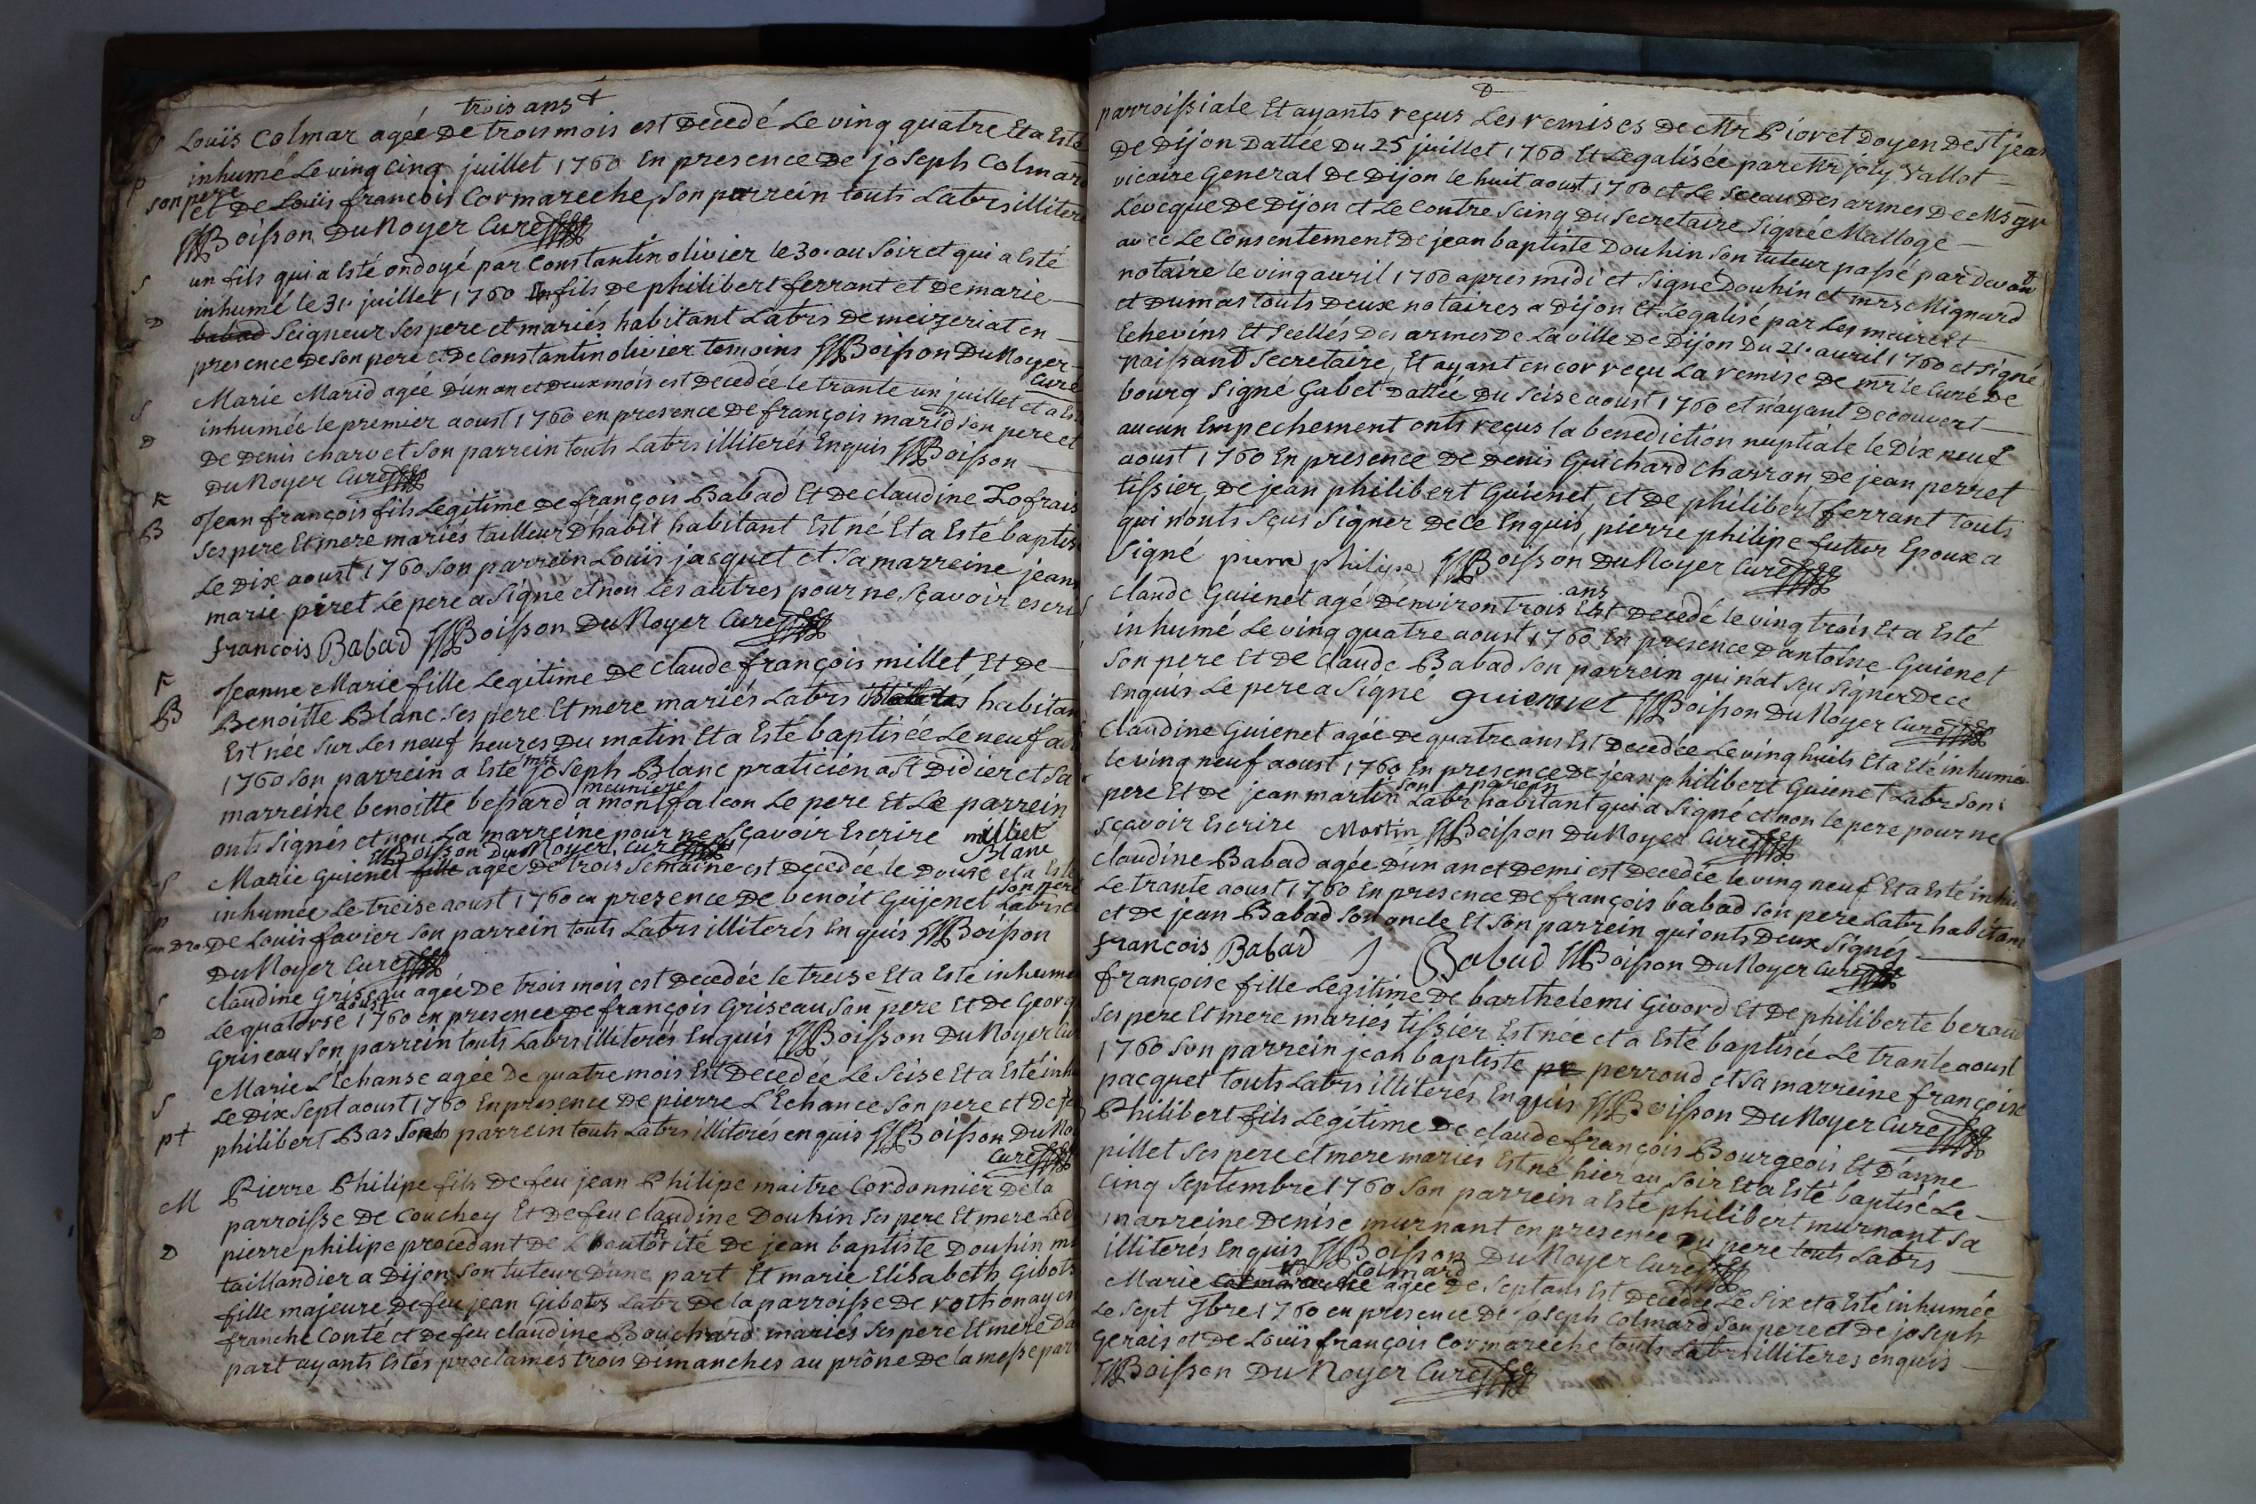 trois ans +
S Louis Colmar agée De trois mois est Decedé Le vinq quatre Et a Esté
p inhumé Le vinq Cinq juillet 1760 En presence De joseph Colmard
son pere et De Loüis françois Cormareche, Son parrein touts Labrs illiterés
Boisson Du Noyer Curé
S un fils qui a Esté ondoyé par Constantin olivier le 30. au Soir et qui a Esté
inhumé le 31. juillet 1760 fils De philibert ferrant et De marie
D babad Seigneur Ses pere et mariés habitant Labrs De meizeriat en
presence De son pere et De Constantin olivier temoins Boisson Du Noyer
Curé
S Marie Marid agée D'un an et Deux mois est Decedée le trante un juillet et a Esté
inhumée le premier aoust 1760 en presence De françois marid son pere et
D De Denis charvet Son parrein touts Labrs illiterés Enquis Boisson
Du Noyer Curé
F Jean françois fils Legitime De françois Babad Et De claudine Lofrais
B Ses pere Et mere mariés tailleur D'habit habitant Est né Et a Esté baptisé
Le Dix aoust 1760 Son parrein Louis jacquet et Sa marreine jeanne
marie piret Le pere a Signé et non Les autres pour ne Sçavoir escrire
francois Babad Boisson Du Noyer Curé
F Jeanne Marie fille Legitime De claude françois millet Et De
B Benoitte Blanc Ses pere Et mere mariés Labrs habitans
Est née Sur Les neuf heures Du matin Et a Esté baptisée Le neuf aoust
1760 Son parrein a Esté mre joseph Blanc praticien a St Didier et Sa
marreine benoitte bessard meuniere a montfalcon Le pere Et Le parrein
onts Signés et non La marreine pour ne Sçavoir Escrire milliet
Boisson Du Noyer Curé Blanc
S Marie Guienet fille agée De trois Semaine est Decedée le Douse et a Esté
p inhumée Le treise aoust 1760 en presence De benoit Guienet son pere Labrs et
De Louïs favier Son parrein touts Labrs illiterés Enquis Boisson
Du Noyer Curé
S Claudine Griseau agée De trois mois est Decedée le treise Et a Esté inhumée
D Le quatorse aoust 1760 en presence De françois Griseau Son pere Et De George
Griseau Son parrein touts Labrs illiterés Enquis Boisson Du Noyer Curé
Marie L'Echanse agée De quatre mois Est Decedée Le Seise Et a Esté inh
S Le Dix Sept aoust 1760 En presence De pierre L'Echance Son pere et De
pt philibert Bas Son parrein touts Labrs illiterés enquis Boisson Du No
Curé
M Pierre Philipe fils De feu jean Philipe maitre Cordonnier De la
parroisse De Couchey Et De feu claudine Douhin Ses pere Et mere Led
D pierre philipe procedant De L'hautorité De jean baptiste Douhin
taillandier a Dijon, Son tuteur D'une part Et marie Elisabeth Gibots
fille majeure De feu jean Gibots Labr De la parroisse De rothonay en
franche Conté et De feu claudine Bouchard mariés Ses pere Et mere D'a
part ayants Estés proclamés trois Dimanches au prône De la messe par
parroissiale Et ayants reçus Les remises De Mr Pioret Doyen De St jean
De Dijon Dattée Du 25 juillet 1760 Et Legalisée par Mr joly Vallot
vicaire General De Dijon le huit aoust 1760 et Le Sceau Des armes De Msgr
Leveque De Dijon et Le Contre Scing Du Secretaire Signé Malloge
avec Le Consentement De jean baptiste Douhin Son tuteur passé par Devant
notaire le vinq avril 1760 apres midi et Signé Douhin et mrs Mignard
et Dumas touts Deux notaires a Dijon Et Légalisé par Les maire Et
Echevins Et Scellés Des armes De La ville De Dijon Du 21. avril 1760 et Signé
Naissant Secretaire, Et ayant encor reçu La remise De mr le Curé De
bourg Signé Gabet Dattée Du Seise aoust 1760 et n'ayant Decouvert
aucun Empechement onts reçus la benediction nuptiale le Dix neuf
aoust 1760 En presence De Denis Guichard Charron De jean perret
tissier, De jean philibert Guienet, et De philibert ferrant touts
qui n'onts Sçus Signer De Ce Enquis, pierre philipe futur Epoux a
Signé pierre philipe Boisson Du Noyer Curé
Claude Guienet agé D'environ trois ans Est Decedé le vinq trois Et a Esté
inhumé Le vinq quatre aoust 1760 En presence D'antoine Guienet
Son pere Et De Claude Babad Son parrein qui n'at Seu Signer De ce
Enquis Le pere a Signé guiennet Boisson Du Noyer Curé
Claudine Guienet agée De quatre ans Est Decedée Le vinq huits Et a Eté inhumée
le vinq neuf aoust 1760 En presence De jean philibert Guienet Labr Son
pere Et De jean martin son parein Labr habitant qui a Signé et non le pere pour ne
Sçavoir Escrire Martin Boisson Du Noyer Curé
Claudine Babad agée D'un an et Demi est Decedée le vinq neuf Et a Esté inhu
Le trante aoust 1760 En presence De françois babad Son pere Labr habitant
et De jean Babad Son oncle Et Son parrein qui onts Deux Signés
francois Babad J Babad Boisson Du Noyer Curé
françoise fille Legitime De barthelemi Givord Et De philiberte beraud
Ses pere Et mere mariés tissier Est née et a Esté baptisée Le trante aoust
1760 Son parrein jean baptiste pe perroud et Sa marreine françoise
pacquet touts Labrs illiterés Enquis Boisson Du Noyer Curé
Philibert fils Legitime De claude françois Bourgeois Et D'anne
pillet Ses pere et mere mariés Est né hier au Soir Et a Esté baptisé Le
Cinq Septembre 1760 Son parrein a Esté philibert murnant Sa
marreine Denise murnant en presence Du pere touts Labrs
illiterés Enquis Boisson Du Noyer Curé
Marie Cormareche Colmard agée De Sept ans Est Decedée Le Six et a Esté inhumée
Le Sept 7bre 1760 en presence De joseph Colmard Son pere et De joseph
Gerais et De Louïs françois Cormareche touts Labrs illiteres enquis
Boisson Du Noyer Curé